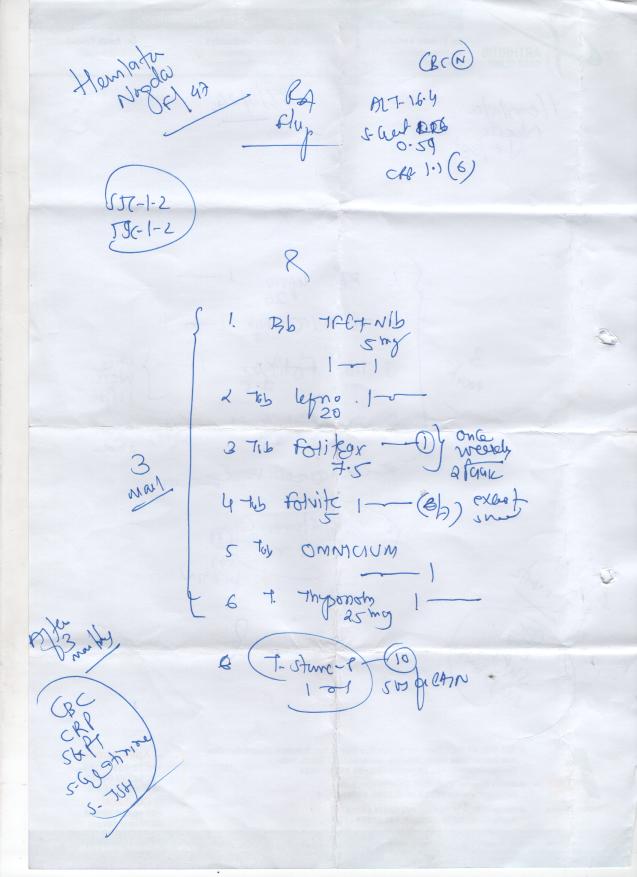 Hemlata
Nagda
F/47
RA
f/up
CBC (N)
ALT-16.4
S-Creat
0.59
CRP 1.1 (6)
SJC-1-2
TJC-1-2
R
1. Tab TFCT-NIb
5 mg
1 — 1
2 Tab Lefno 1 —
20
3 Tab Folitrax — 1 } once
7.5 weekly
4 Tab Folvite 1 — except
5
5 Tab OMNICIUM
— 1
6 T. Thyronorm 1 —
25 mg
3
After
3
CBC
CRP
SGPT
S-Creatinine
S-TSH
10
SOS